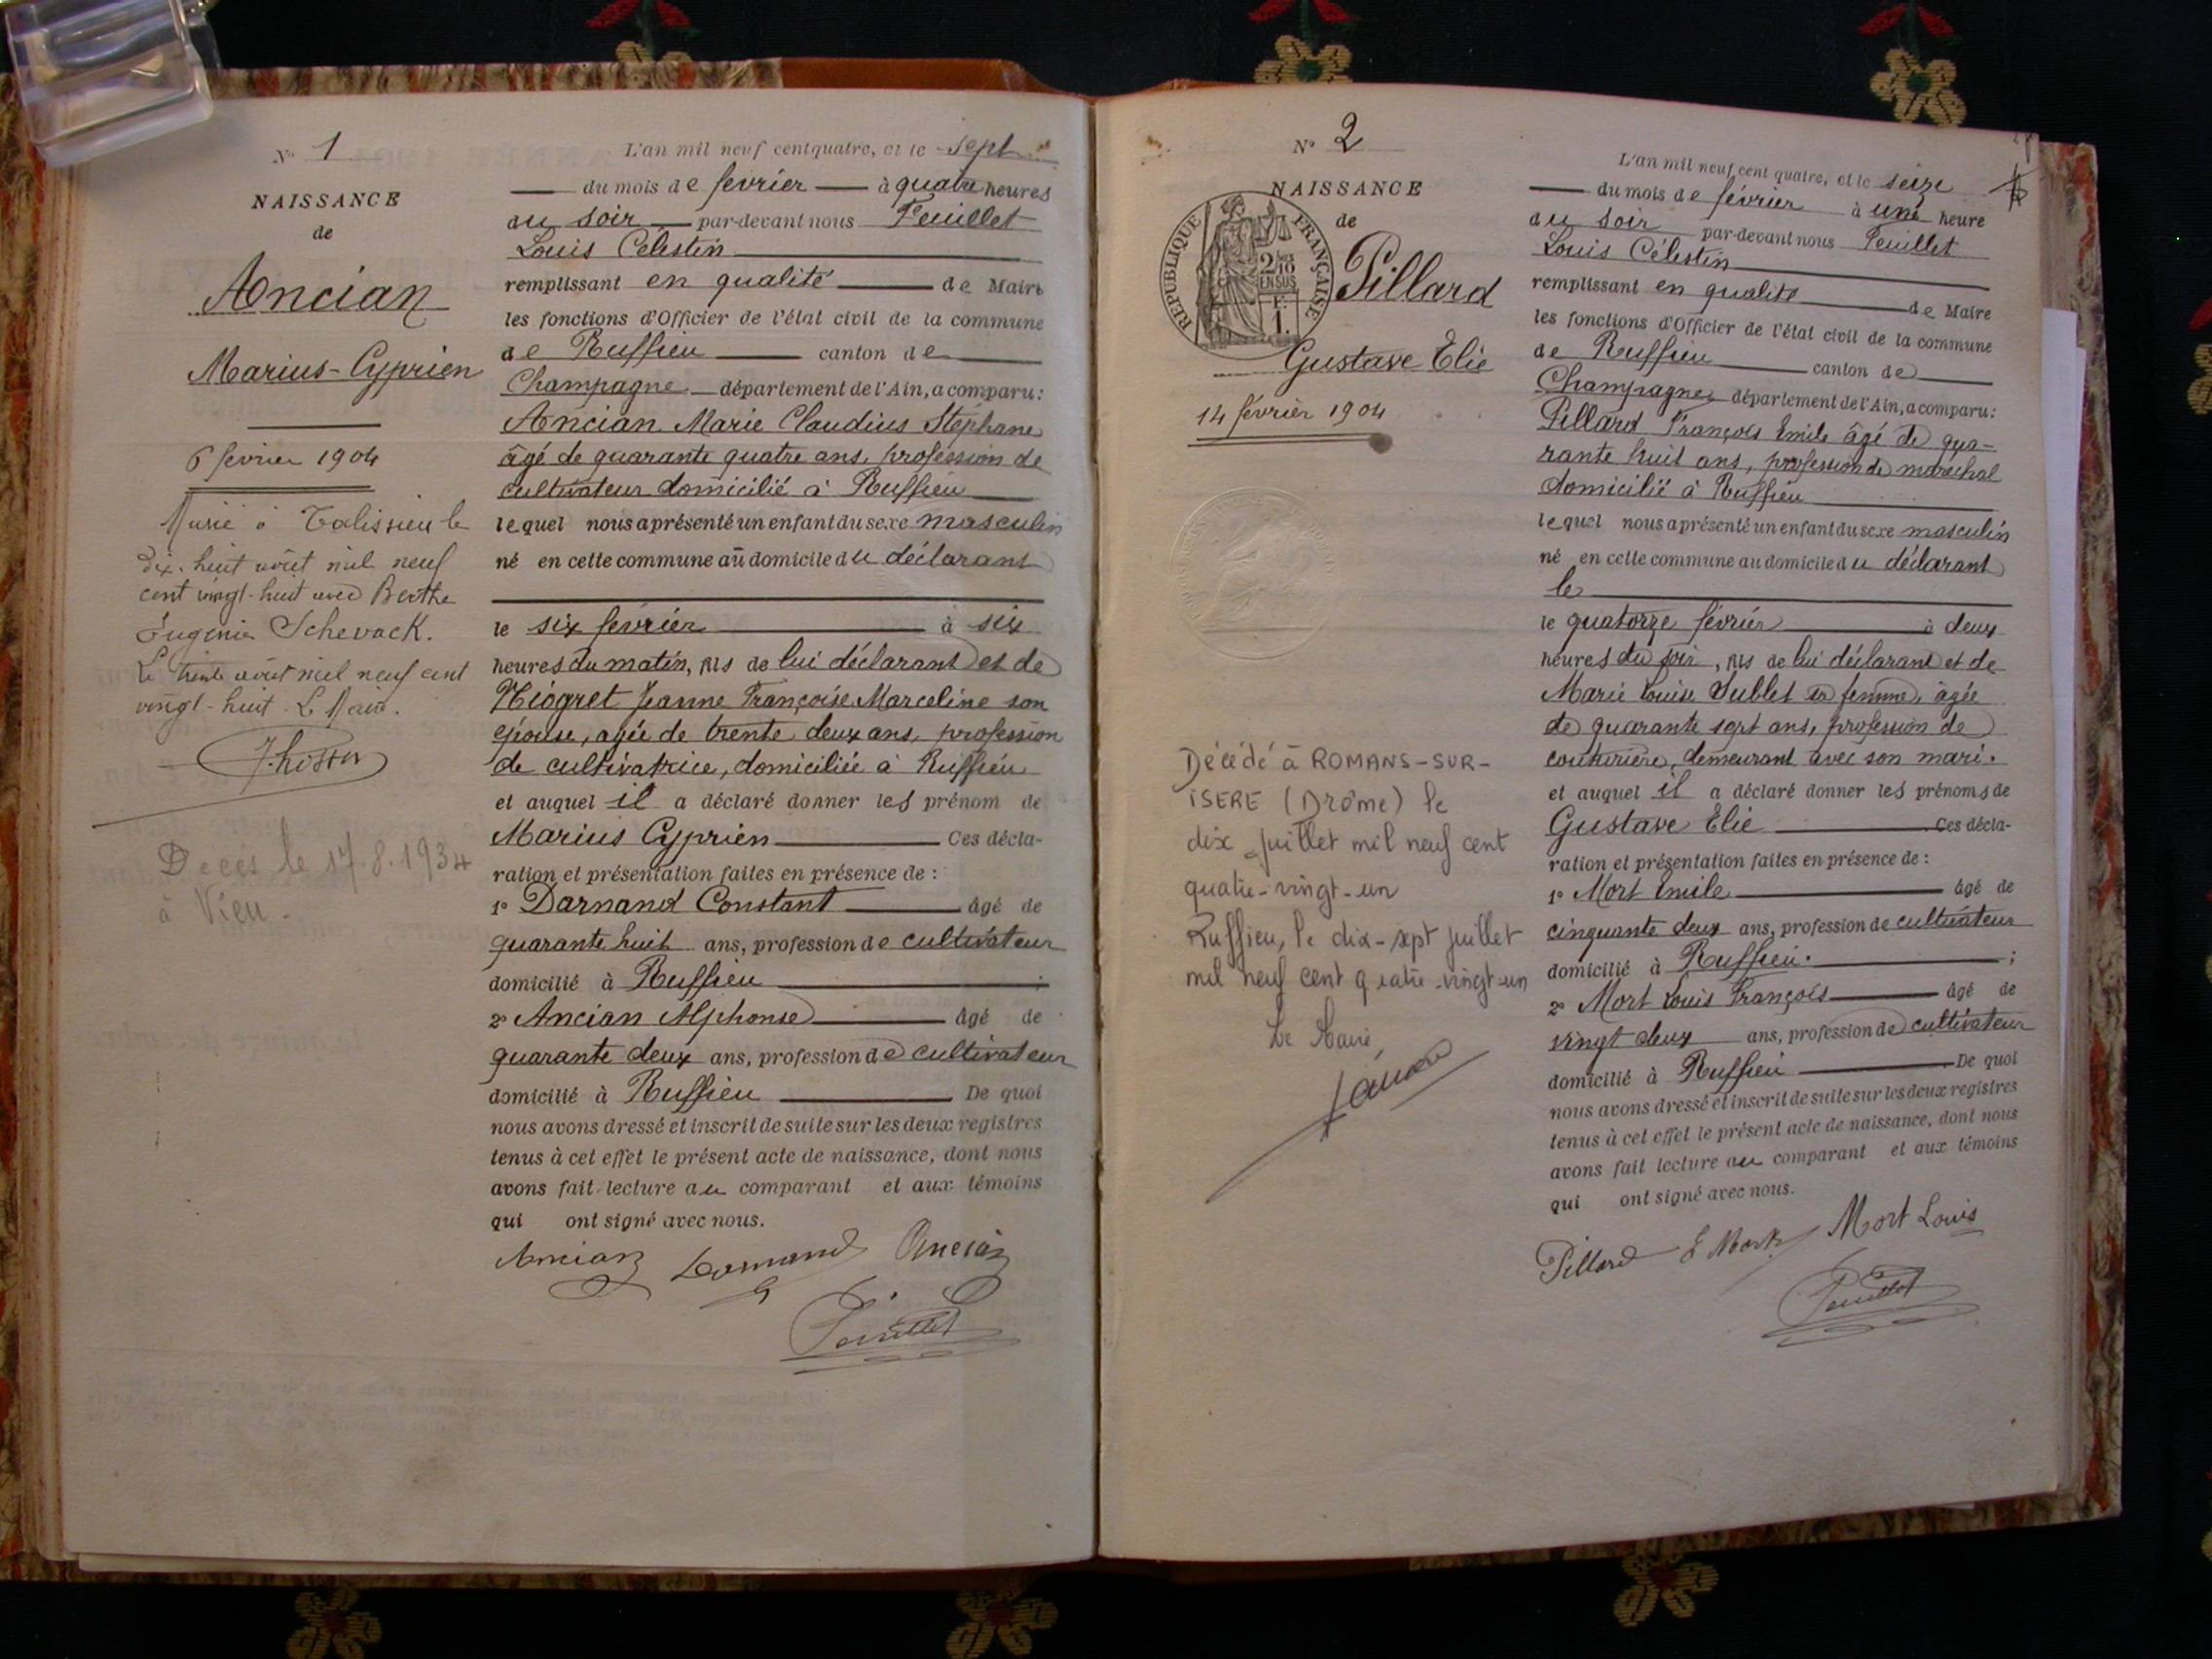 N° 1
NAISSANCE
de
Ancian
Marius-Cyprien
6 février 1904
Marié à Talissieu le
dix-huit août mil neuf
cent vingt-huit avec Berthe
Eugénie Schevack.
Le trente août mil neuf cent
vingt-huit. Le Maire.
Décès le 17.8.1934
à Vieu.
L'an mil neuf cent quatre, et le sept
du mois de février à quatre heures
du soir par-devant nous Feuillet
Louis Célestin
remplissant en qualité de Maire
les fonctions d'Officier de l'état civil de la commune
de Ruffieu canton de
Champagne département de l'Ain, a comparu:
Ancian Marie Claudius Stéphane
âgé de quarante quatre ans, profession de
cultivateur domicilié à Ruffieu
lequel nous a présenté un enfant du sexe masculin
né en cette commune au domicile du déclarant
le six février à six
heures du matin, fils de lui déclarant et de
Niogret Jeanne Françoise Marceline son
épouse, agée de trente deux ans, profession
de cultivatrice, domiciliée à Ruffieu
et auquel il a déclaré donner les prénom de
Marius Cyprien Ces décla-
ration et présentation faites en présence de :
1° Darnand Constant âgé de
quarante huit ans, profession de cultivateur
domicilié à Ruffieu ;
2° Ancian Alphonse âgé de
quarante deux ans, profession de cultivateur
domicilié à Ruffieu De quoi
nous avons dressé et inscrit de suite sur les deux registres
tenus à cet effet le présent acte de naissance, dont nous
avons fait lecture au comparant et aux témoins
qui ont signé avec nous.
Ancian Darnand Ancian
Feuillet
N° 2
NAISSANCE
de
REPUBLIQUE FRANÇAISE
2/10
EN SUS
Pillard
Gustave Elie
14 février 1904
Décédé à ROMANS-SUR-
ISERE (Drôme) le
dix juillet mil neuf cent
quatre-vingt-un
Ruffieu, le dix-sept juillet
mil neuf cent quatre-vingt-un
Le Maire
L'an mil neuf cent quatre, et le seize
du mois de février à une heure
du soir par-devant nous Feuillet
Louis Célestin
remplissant en qualité de Maire
les fonctions d'Officier de l'état civil de la commune
de Ruffieu canton de
Champagne département de l'Ain, a comparu:
Pillard François Emile âgé de qua-
rante huit ans, profession de maréchal
domicilié à Ruffieu
lequel nous a présenté un enfant du sexe masculin
né en cette commune au domicile du déclarant
le
le quatorze février à deux
heures du soir, fils de lui déclarant et de
Marie Louise Sublet sa femme, âgée
de quarante sept ans, profession de
couturière, demeurant avec son mari.
et auquel il a déclaré donner les prénoms de
Gustave Elie Ces décla-
ration et présentation faites en présence de :
1° Mort Emile âgé de
cinquante deux ans, profession de cultivateur
domicilié à Ruffieu. ;
2° Mort Louis François âgé de
vingt deux ans, profession de cultivateur
domicilié à Ruffieu De quoi
nous avons dressé et inscrit de suite sur les deux registres
tenus à cet effet le présent acte de naissance, dont nous
avons fait lecture au comparant et aux témoins
qui ont signé avec nous.
Pillard E Mort Mort Louis
Feuillet